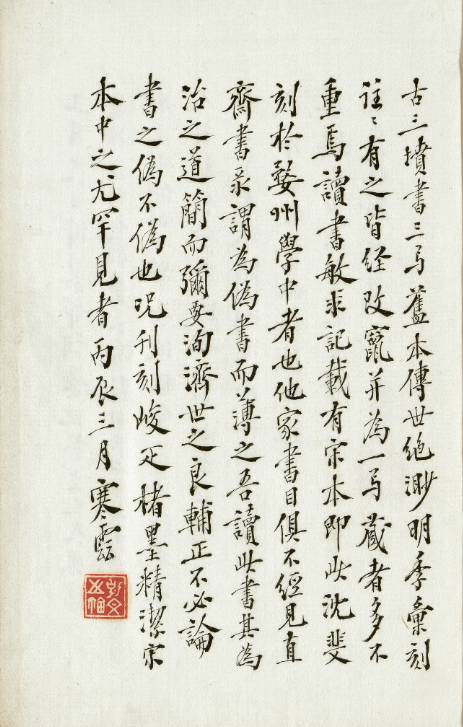 古三墳書三弓舊本傳世絕渺明季彙刻
往〻有之皆經改竄并為一弓藏者多不
重焉讀書敏求記載有宋本即此沈斐
刻於婺州學中者也他家書目俱不經見直
齋書彔謂為偽書而薄之吾讀此書其為
治之道簡而彌要洵濟世之良輔正不必論
書之偽不偽也況刊刻峻疋楮墨精潔宋
本中之尤罕見者丙辰三月寒雲